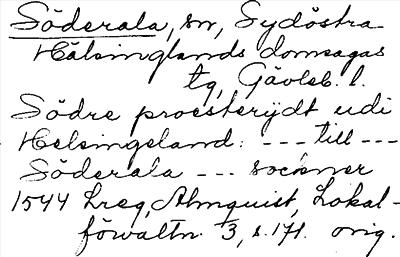 Söderala, sn, Sydöstra
Hälsinglands domsagas
tg, Gävleb. l.
Södre proesterijdt udi
Helsingeland: --- till ---
Söderala --- socknner
1544 Lreg, Almquist, Lokal-
förvaltn. 3, s. 171. orig.